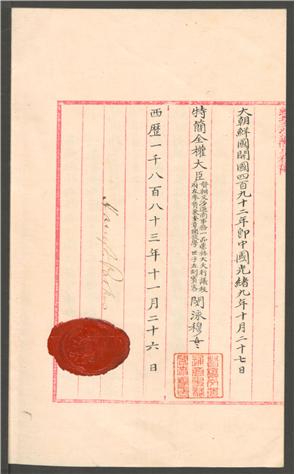 大朝鮮國開國四百九十二年卽中國光緖九年十月二十七日
特簡全權大臣
督辦交涉通商事務一品崇祿大夫行議政
府左參贊兼奎章閣提學 世子左副賓客
閔泳穆
西歷一千八百八十三年十一月二十六日
Harry S. Parkes